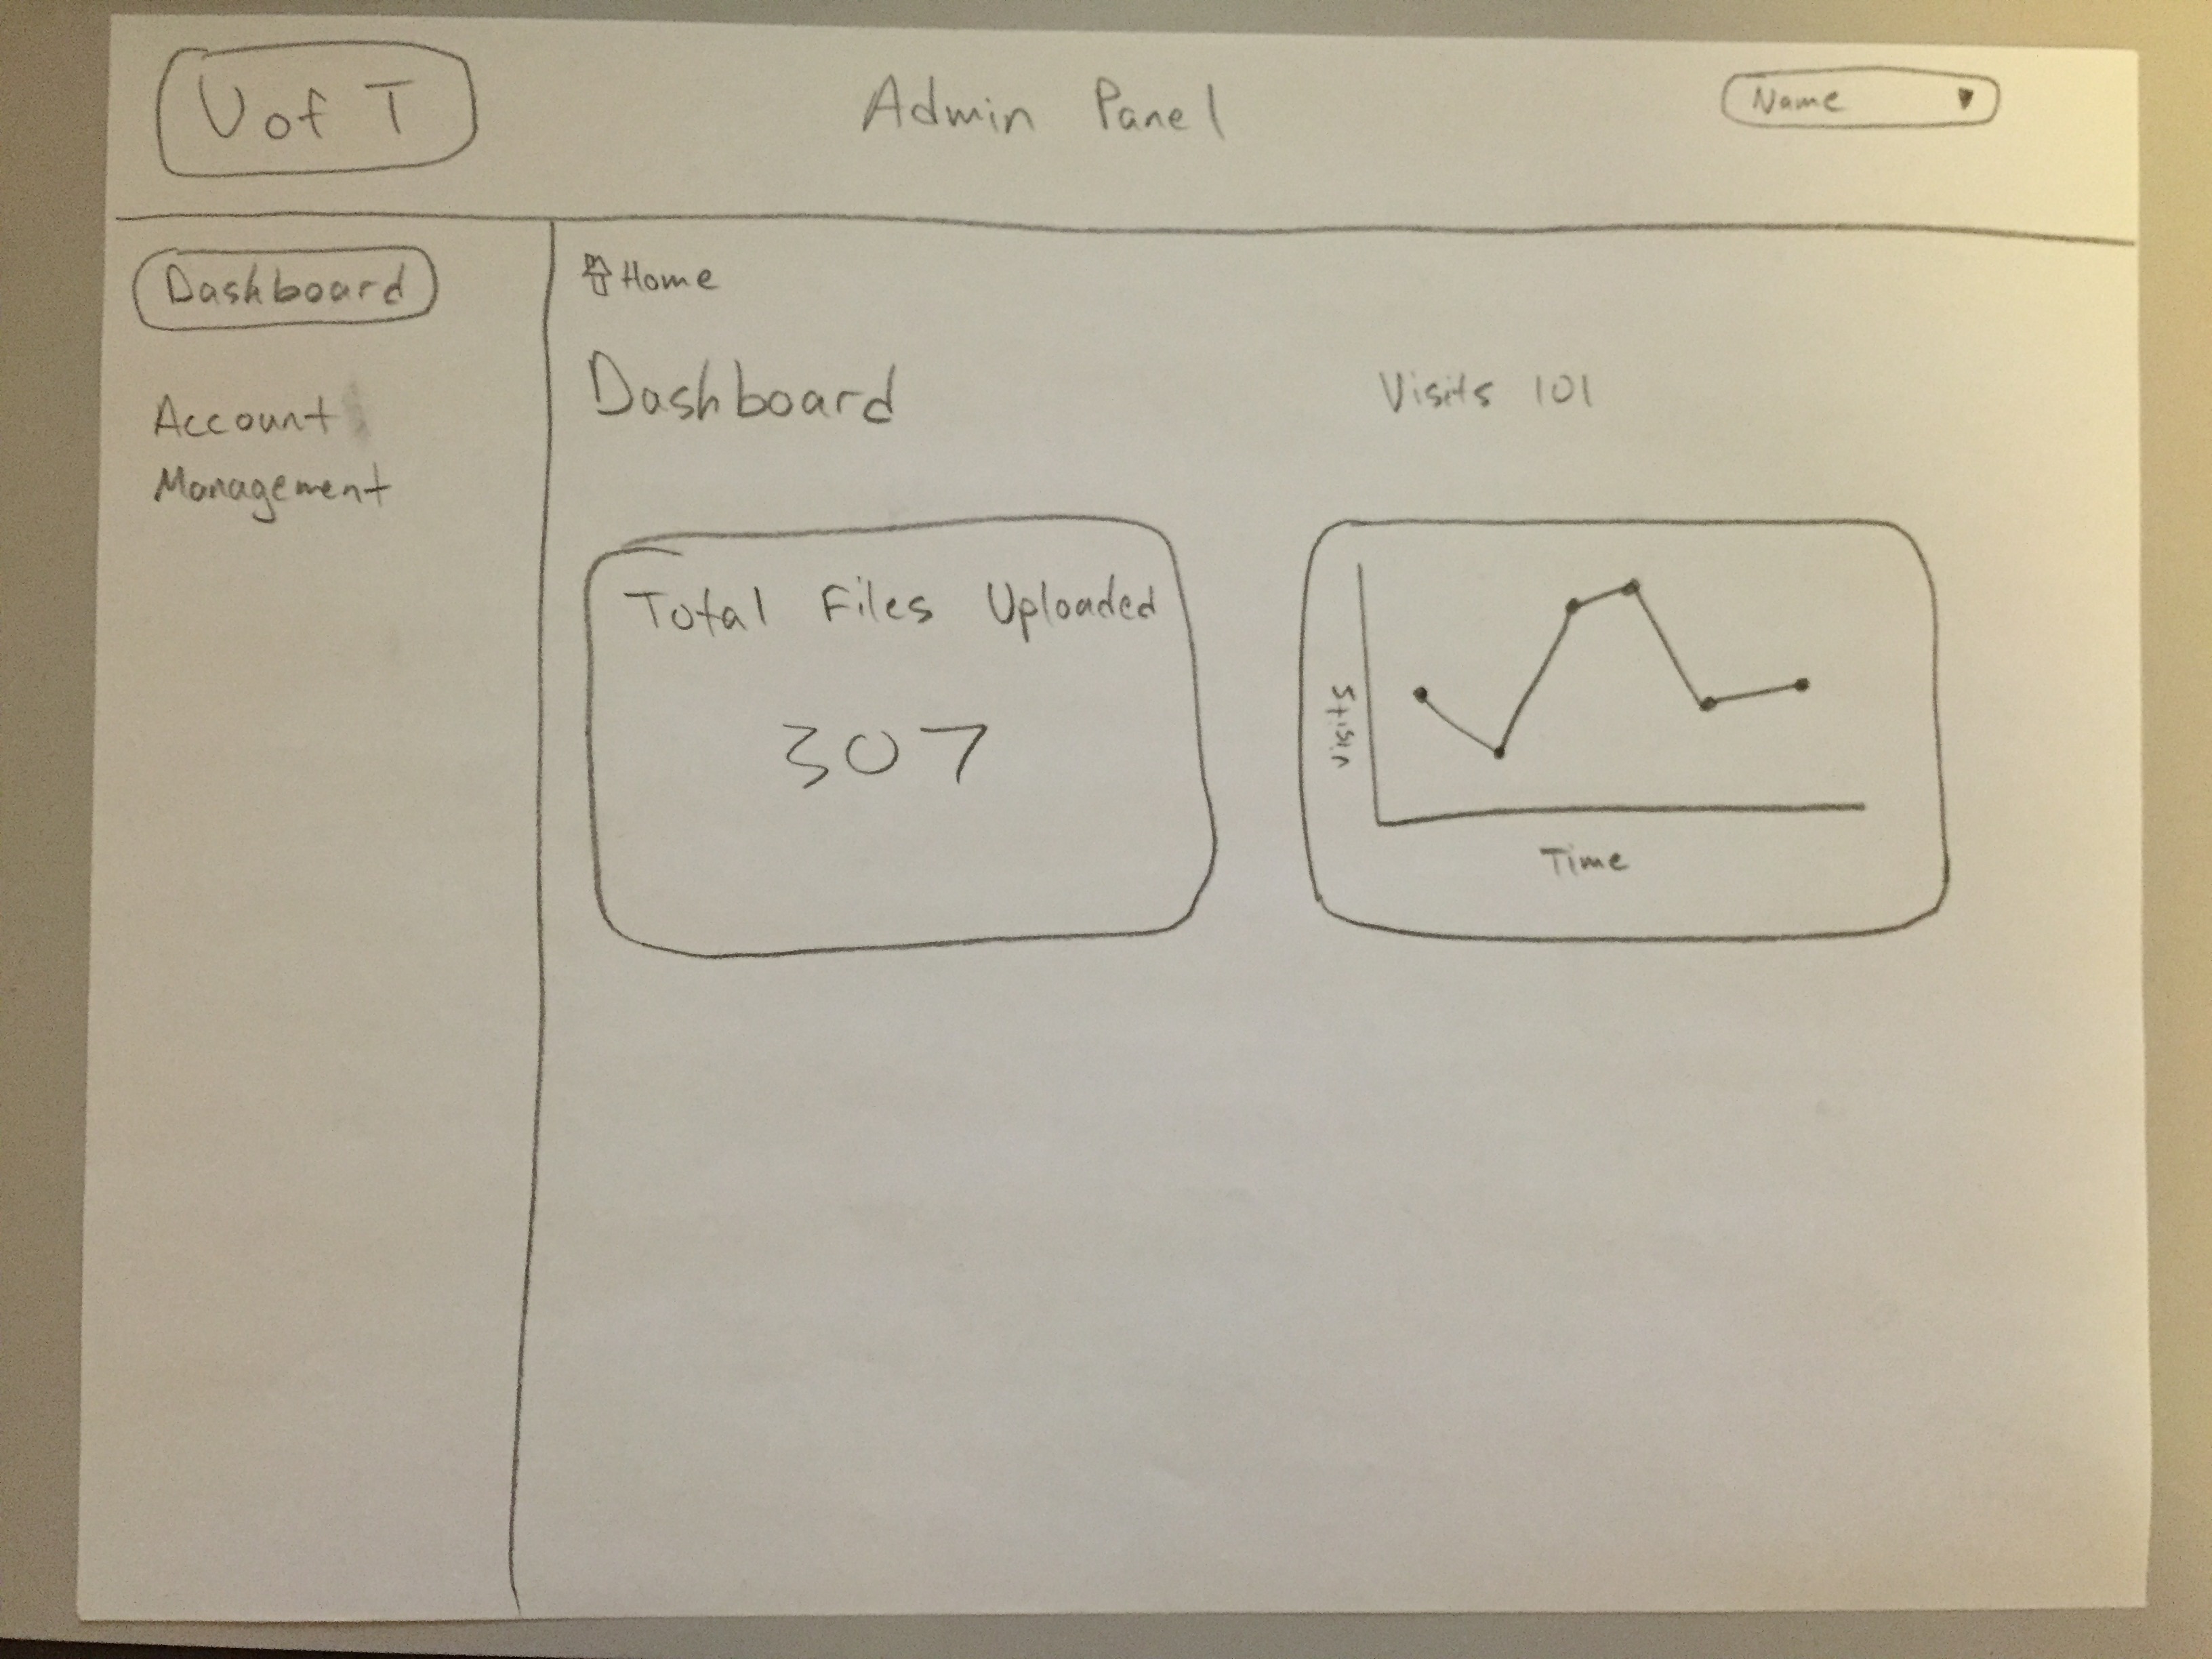 U of T
Admin Panel
Name
Dashboard
Account
Management
Home
Dashboard
Visits 101
Total Files Uploaded
307
Visits
Time